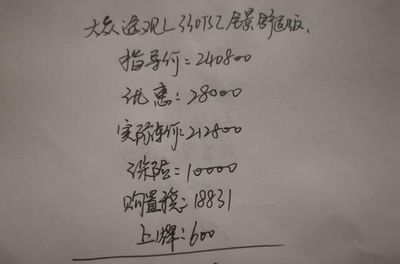 大众途观L 330TSI 全景舒适版.
指导价=240800
优惠:28000
实际车价:212800
保险=10000
购置税:18831
上牌:600